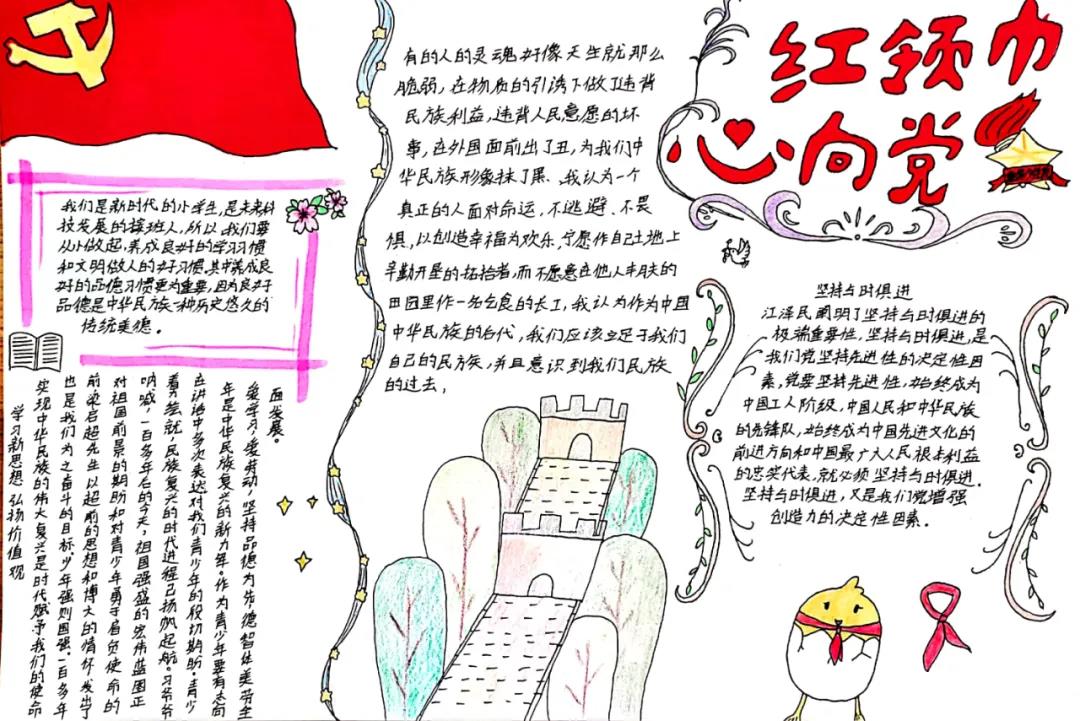 红领巾
心向党
我们是新时代的小学生,是未来科
技发展的接班人,所以,我们要
从小做起,养成良好的学习习惯
和文明做人的好习惯,其中养成良
好的品德习惯更为重要,因为良好
品德是中华民族一种历史悠久的
传统美德。
学习新思想 弘扬价值观
实现中华民族的伟大复兴是时代赋予我们的使命
也是我们为之奋斗的目标,少年强则国强.一百多年
前梁启超先生以超前的思想和博大的情怀发出了
对祖国前景的期盼和对青少年勇于肩负使命的
呐喊,一百多年后的今天,祖国强盛的宏伟蓝图正
绘就,民族复兴的时代进程已扬帆起航。习爷爷
在讲话中多次表达对我们青少年的殷切期盼。青少
年是中华民族复兴的新力军。作为青少年要有志向
爱学习,爱劳动,坚持品德为先,德智体美劳全
面发展。
有的人的灵魂好像天生就那么
脆弱,在物质的引诱下做了违背
民族利益,违背人民意愿的坏
事,在外国面前出了丑,为我们中
华民族形象抹了黑、我认为一个
真正的人面对命运,不逃避、不畏
惧,以创造幸福为欢乐,宁愿作自己土地上
辛勤开垦的拓拾者,而不愿意在他人丰腴的
田园里作一名乞食的长工,我认为作为中国
中华民族的后代,我们应该立足于我们
自己的民族,并且意识到我们民族
的过去,
坚持与时俱进
江泽民阐明了坚持与时俱进的
极端重要性,坚持与时俱进,是
我们党坚持先进性的决定性因
素,党要坚持先进性,始终成为
中国工人阶级,中国人民和中华民族
的先锋队,始终成为中国先进文化的
前进方向和中国最广大人民根本利益
的忠实代表,就必须坚持与时俱进.
坚持与时俱进,又是我们党增强
创造力的决定性因素。